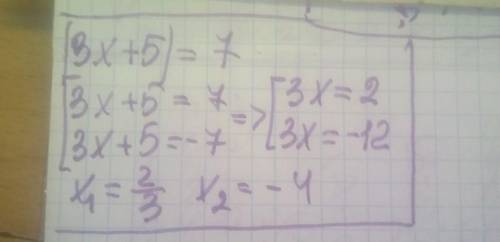 |3x+5| = 7
[3x+5 = 7
3x+5 = -7 => [3x = 2
3x = -12
x₁ = 2/3 x₂ = -4